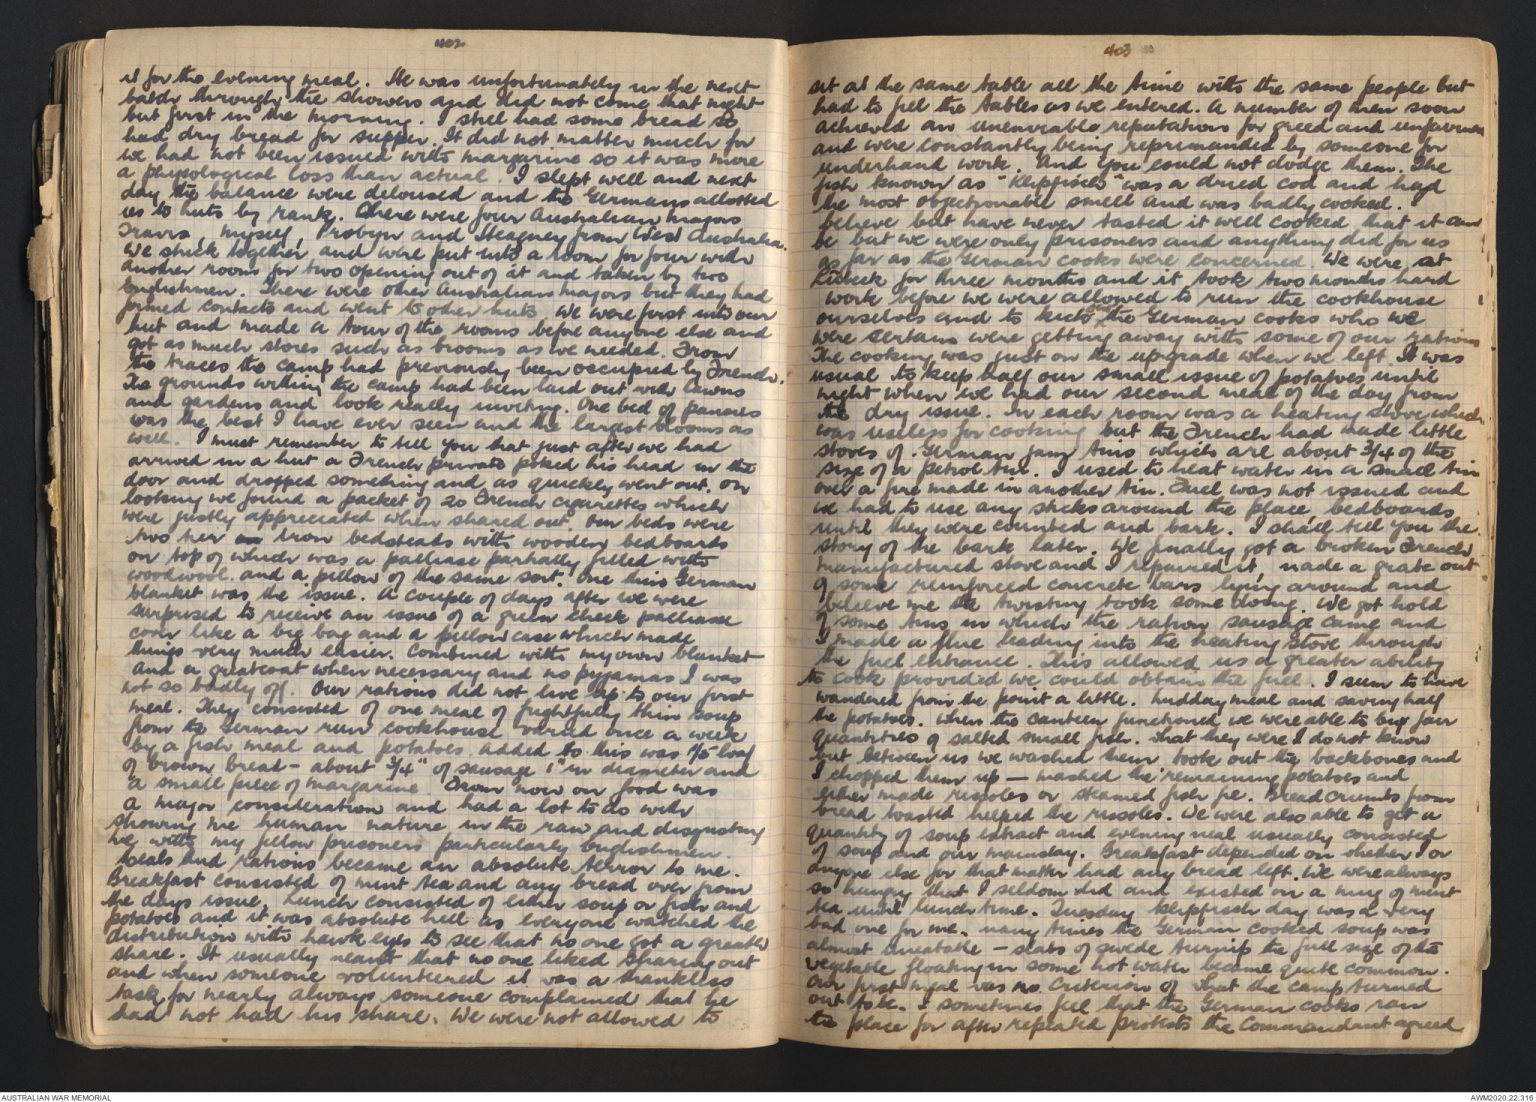 402
it for the evening meal. He was unfortunately in the next
batch through the showers and did not come that night
but first in the morning. I still had some bread so
had dry bread for supper. It did not matter much for
we had not been issued with margarine so it was more
a physological loss than actual. I slept well and next
day the balance were deloused and the Germans allotted
us to huts by rank. There were four Australian majors
Travis, myself, Probyn and Heagney from West Australia.
We stuck together, and were put into a room for four with
another room for two opening out of it and taken by two
Englishmen. There were other Australian majors but they had
formed contacts and went to other huts. We were first into our
hut and made a tour of the rooms before anyone else and
got as much stores such as brooms as we needed. From
the traces the camp had previously been occupied by French.
The grounds within the camp had been laid out with lawns
and gardens and look really inviting. One bed of pansies
was the best I have ever seen and the largest blooms as
well. I must remember to tell you that just after we had
arrived in a hut a French private poked his head in the
door and dropped something and as quickly went out. On
looking we found a packet of 20 French cigarettes which
were justly appreciated when shared out. Our beds were
two tier iron bedsteads with wooden bedboards
on top of which was a palliase partially filled with
woodwool and a pillow of the same sort. One thin German
blanket was the issue. A couple of days after we were
surprised to receive an issue of a green check palliasse
cover like a big bag and a pillow case which made
things very much easier. Combined with my own blanket
and a greatcoat when necessary and no pyjamas I was
not so badly off. Our rations did not live up to our first
meal. They consisted of one meal of frightfully thin soup
from the German run cookhouse varied once a week
by a fish meal and potatoes. Added to this was 1/5 loaf
of brown bread - about 3/4" of sausage 1" in diameter and
a small piece of margarine. From now on food was
a major consideration and had a lot to do with
showing me human nature in the raw and disgusting
me with my fellow prisoners particularly Englishmen.
Meals and rations became an absolute terror to me.
Breakfast consisted of mint tea and any bread over from
the days issue. Lunch consisted of either soup or fish and
potatoes and it was absolute hell as everyone watched the
distribution with hawk eyes to see that no one got a greater
share. It usually meant that no one liked sharing out
and when someone volunteered it was a thankless
task for nearly always someone complained that he
had not had his share. We were not allowed to
403
sit at the same table all the time with the same people but
had to fill the tables as we entered. A number of men soon
achieved an unenviable reputation for greed and unfairness
and were constantly being reprimanded by someone for
underhand work. And you could not dodge them. The
fish known as "klipfisch" was a dried cod and had
the most objectionable smell and was badly cooked. I
believe but have never tasted it well cooked that it can
be but we were only prisoners and anything did for us
as far as the German cooks were concerned. We were at
Lubeck for three months and it took two months hard
work before we were allowed to run the cookhouse
ourselves and to kick out the German cooks who we
were certain were getting away with some of our rations
The cooking was just on the upgrade when we left. It was
usual to keep half our small issue of potatoes until
night when we had our second meal of the day from
the dry issue. In each room was a heating stove which
was useless for cooking but the French had made little
stoves of German jam tins which are about 3/4 of the
size of a petrol tin. I used to heat water in a small tin
over a fire made in another tin. Fuel was not issued and
we had to use any sticks around the place, bedboards
until they were counted and bark. I shall tell you the
story of the bark later. We finally got a broken French
manufactured stove and I repaired it, made a grate out
of some reinforced concrete bars lying around and
believe me the twisting took some doing. We got hold
of some tins in which the ration sausage came and
I made a flue leading into the heating stove through
the fuel entrance. This allowed us a greater ability
to cook provided we could obtain the fuel. I seem to have
wandered from the point a little. Midday meal and saving half
the potatoes. When the canteen functioned we were able to buy fair
quantities of salted small fish. What they were I do not know
but between us we washed them took out the backbones and
I chopped them up - mashed the remaining potatoes and
either made rissoles or steamed fish pie. Breadcrumbs from
bread toasted helped the rissoles. We were also able to get a
quantity of soup extract and evening meal usually consisted
of soup and our mainstay. Breakfast depended on whether I or
anyone else for that matter had any bread left. We were always
so hungry that I seldom did and existed on a mug of mint
tea until lunch time. Tuesday klipfisch day was a very
bad one for me. Many times the German cooked soup was
almost uneatable - slabs of swede turnip the full size of the
vegetable floating in some hot water became quite common.
Our first meal was no criterion of what the camp turned
out to be. I sometimes feel that the German cooks ran
the place for after repeated protests the Commandant agreed
AUSTRALIAN WAR MEMORIAL
AWM2020.22.316